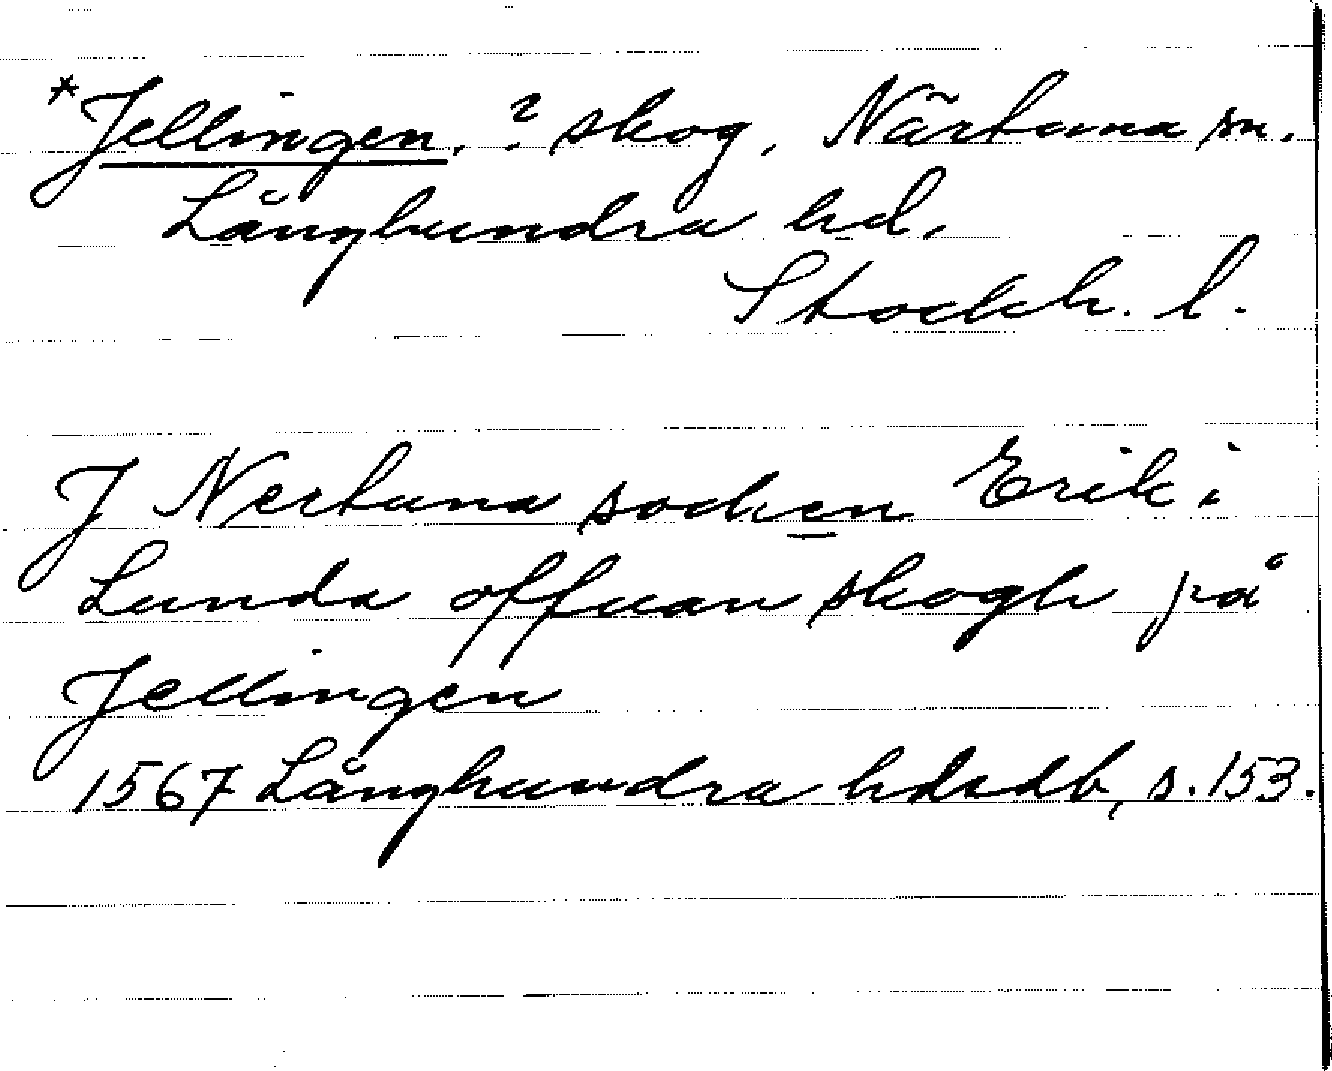 *Jellingen, ? skog, Närtuna sn.
Långhundra hd.
Stockh. l.
J Nertuna socken Erik i
Lunda offuan skogh på
Jellingen
1567 Långhundra hdsdb, s. 153.